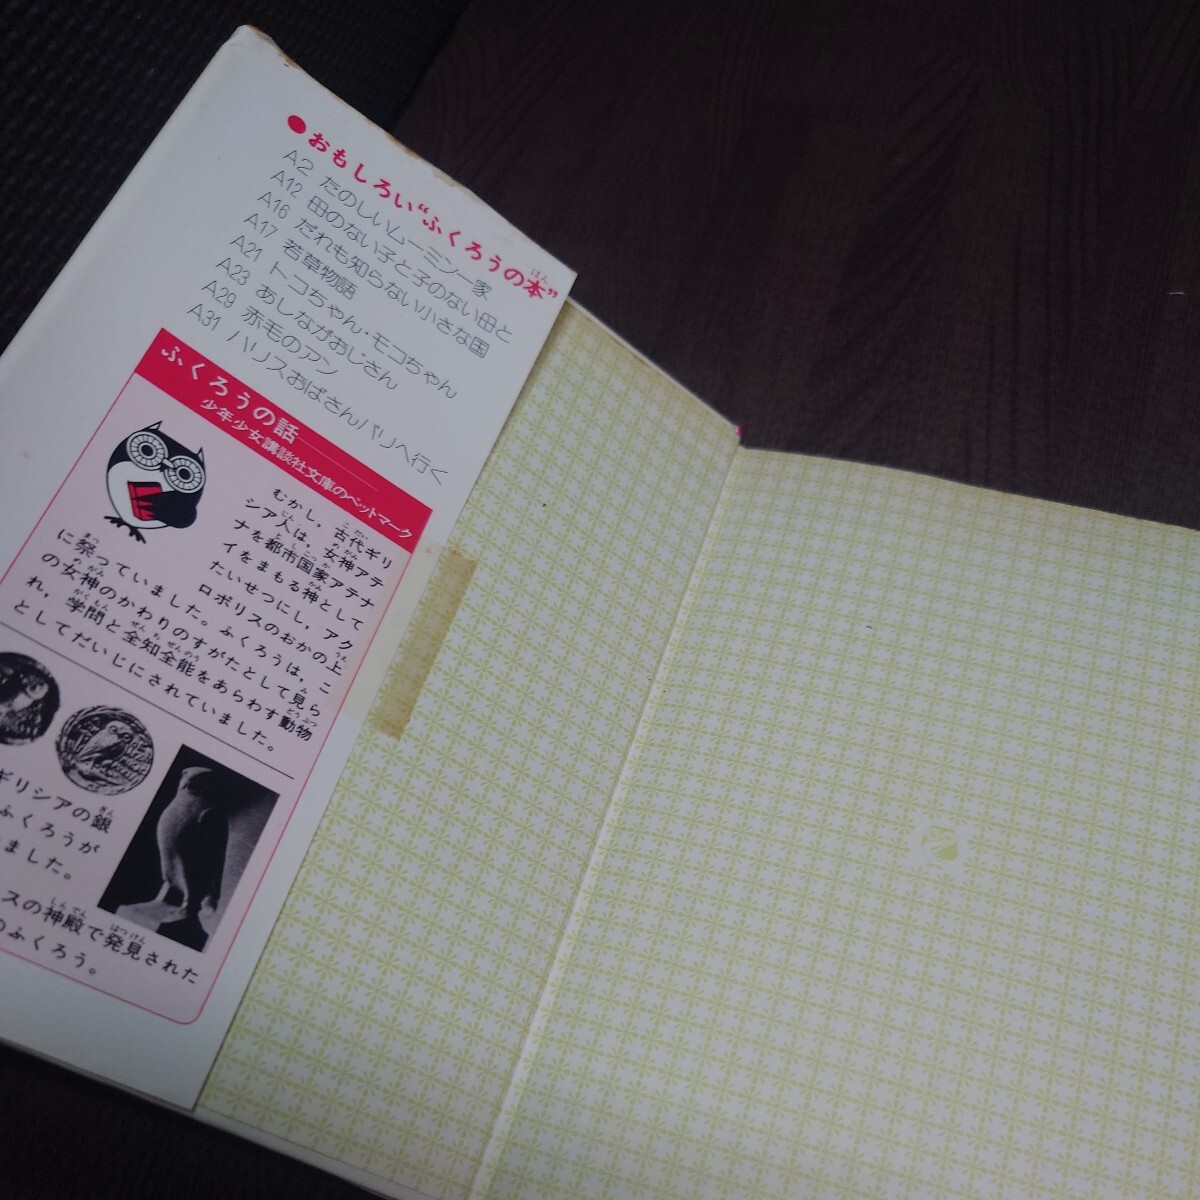 ●おもしろい“ふくろうの本”
A2 たのしいムーミン一家
A12 母のない子と子のない母と
A16 だれも知らない小さな国
A17 若草物語
A21 トコちゃん・モコちゃん
A23 あしながおじさん
A29 赤毛のアン
A31 ハリスおばさんパリへ行く
ふくろうの話
少年少女講談社文庫のペットマーク
むかし，古代ギリ
シア人は，女神アテ
ナを都市国家アテナ
イをまもる神として
たいせつにし，アク
ロポリスのおかの上
に祭っていました。ふくろうは，こ
の女神のかわりのすがたとして見ら
れ，学問と全知全能をあらわす動物
としてだいじにされていました。
ギリシアの銀
ふくろうが
ました。
スの神殿で発見された
のふくろう。